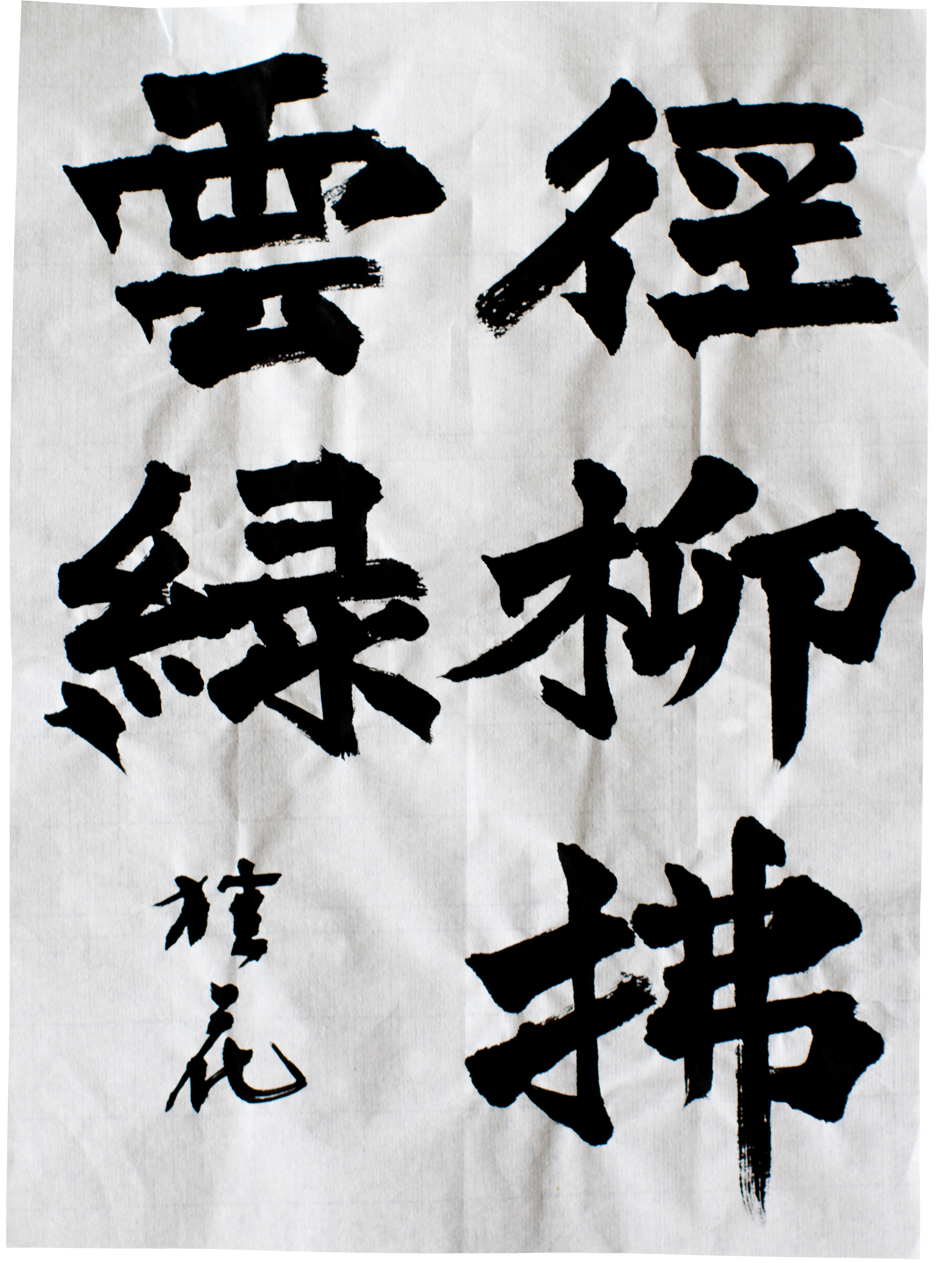 徑柳拂
雲緑
桂花